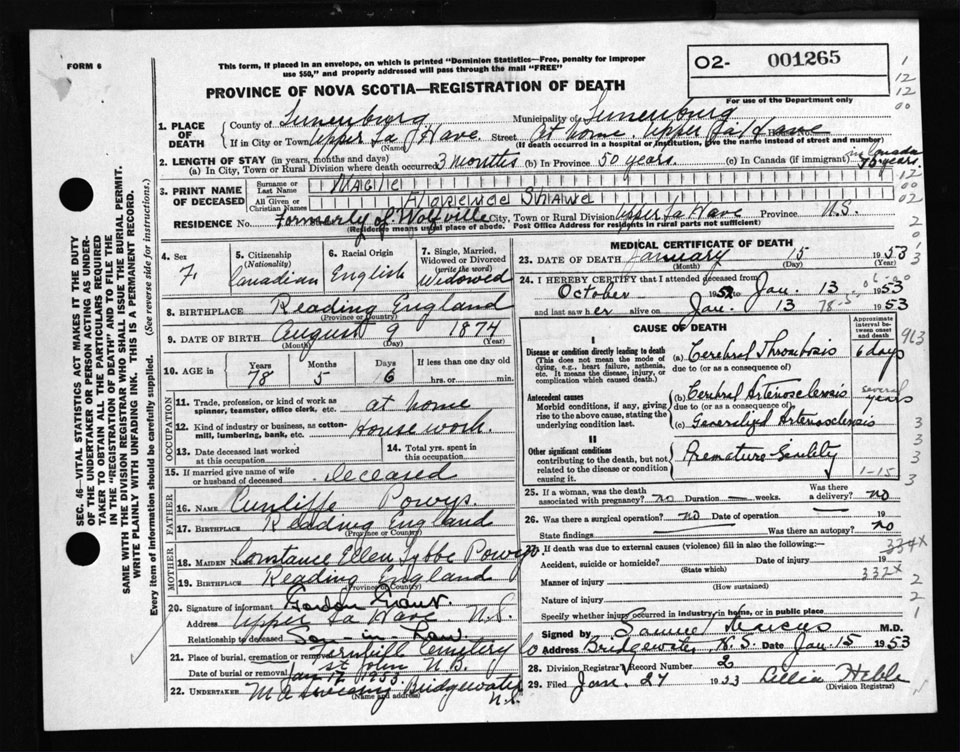 FORM 6
This form, if placed in an envelope, on which is printed "Dominion Statistics—Free, penalty for improper
use $50," and properly addressed will pass through the mail "FREE"
O2- 001265
For use of the Department only
PROVINCE OF NOVA SCOTIA—REGISTRATION OF DEATH
1. PLACE OF DEATH
County of Lunenburg Municipality of Lunenburg
If in City or Town Upper La Have. Street At home. Upper La Have House No.
(Name) (If death occurred in a hospital or institution, give the name instead of street and number)
2. LENGTH OF STAY (in years, months and days)
(a) In City, Town or Rural Division where death occurred 3 months (b) In Province 50 years. (c) In Canada (if immigrant) in Canada years.
3. PRINT NAME OF DECEASED
Surname or Last Name Magill
All Given or Christian Names Florence Shawe
RESIDENCE No. Formerly of Wolfville City, Town or Rural Division Upper La Have Province N.S.
(Residence means usual place of abode. Post Office Address for residents in rural parts not sufficient)
4. Sex F.
5. Citizenship (Nationality) Canadian
6. Racial Origin English
7. Single, Married, Widowed or Divorced (write the word) Widowed
8. BIRTHPLACE Reading England
(Province or Country)
9. DATE OF BIRTH August 9 1874
(Month) (Day) (Year)
10. AGE in Years 78 Months 5 Days 6 If less than one day old hrs. or min.
OCCUPATION
11. Trade, profession, or kind of work as spinner, teamster, office clerk, etc. at home
12. Kind of industry or business, as cotton-mill, lumbering, bank, etc. House work.
13. Date deceased last worked at this occupation
14. Total yrs. spent in this occupation
15. If married give name of wife or husband of deceased Deceased
FATHER
16. NAME Cunliffe Powys.
17. BIRTHPLACE Reading England
(Province or Country)
MOTHER
18. MAIDEN NAME Constance Ellen Powys
19. BIRTHPLACE Reading England
(Province or Country)
20. Signature of informant Gordon
Address Upper La Have N.S.
Relationship to deceased Son-in-Law.
21. Place of burial, cremation or removal Fernhill Cemetery
St John N.B.
Date of burial or removal Jan 17 1953.
22. UNDERTAKER Bridgewater N.S.
(Name and address)
MEDICAL CERTIFICATE OF DEATH
23. DATE OF DEATH January 15 1953
(Month) (Day) (Year)
24. I HEREBY CERTIFY that I attended deceased from
October 1952 to Jan. 13 1953
and last saw her alive on Jan. 13 1953
CAUSE OF DEATH
Approximate interval between onset and death
I
Disease or condition directly leading to death (a) Cerebral Thrombosis 6 days
(This does not mean the mode of dying, e.g., heart failure, asthenia, etc. It means the disease, injury, or complication which caused death.)
due to (or as a consequence of)
Antecedent causes (b) Cerebral Arteriosclerosis several years
Morbid conditions, if any, giving rise to the above cause, stating the underlying condition last.
due to (or as a consequence of)
(c) Generalized Arteriosclerosis
II
Other significant conditions contributing to the death, but not related to the disease or condition causing it. Premature Senility
1-15
25. If a woman, was the death associated with pregnancy? no Duration — weeks. Was there a delivery? no
26. Was there a surgical operation? no Date of operation 19
State findings Was there an autopsy? no
If death was due to external causes (violence) fill in also the following:—
Accident, suicide or homicide? Date of injury 19
(State which)
Manner of injury 332x
(How sustained)
Nature of injury
Specify whether injury occurred in industry in home, or in public place
Signed by Samuel Marcus M.D.
Address Bridgewater N.S. Date Jan. 15 1953
28. Division Registrar's Record Number 2
29. Filed Jan. 27 1953 Hebb
(Division Registrar)
SEC. 46—VITAL STATISTICS ACT MAKES IT THE DUTY
OF THE UNDERTAKER OR PERSON ACTING AS UNDER-
TAKER TO OBTAIN ALL THE PARTICULARS REQUIRED
IN THE "REGISTRATION OF DEATH" AND TO FILE THE
SAME WITH THE DIVISION REGISTRAR WHO SHALL ISSUE THE BURIAL PERMIT.
WRITE PLAINLY WITH UNFADING INK. THIS IS A PERMANENT RECORD.
Every item of information should be carefully supplied. (See reverse side for instructions.)